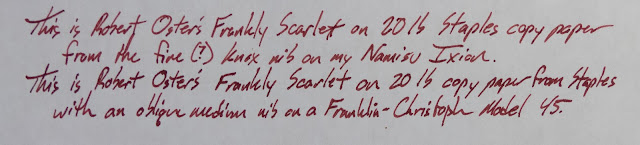 This is Robert Oster's Frankly Scarlet on 20 lb Staples copy paper
from the fine (?) Knox nib on my Namisu Ixion.
This is Robert Oster's Frankly Scarlet on 20 lb copy paper from Staples
with an oblique medium nib on a Franklin-Christoph Model 45.